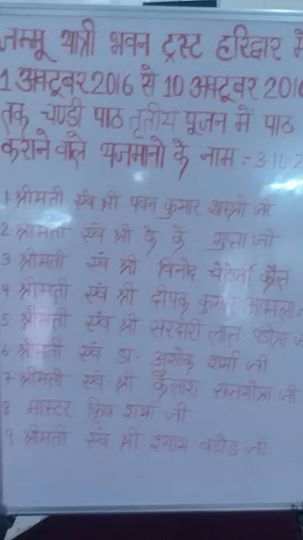 जम्मू यात्री भवन ट्रस्ट हरिद्वार में
1 अक्टूबर 2016 से 10 अक्टूबर 2016
तक चण्डी पाठ तृतीय पूजन में पाठ
कराने वाले यजमानो के नाम :- 3.10.2
1 श्रीमती एवं श्री पवन कुमार शास्त्री जी
2 श्रीमती एवं श्री के के गुप्ता जी
3 श्रीमती एवं श्री विनोद कौल
4 श्रीमती एवं श्री दीपक कुमार
5 श्रीमती एवं श्री सरदारी लाल
6 श्रीमती एवं डा. अशोक शर्मा जी
7 श्रीमती एवं श्री कैलाश राजगोत्रा जी
8 मास्टर शर्मा जी
9 श्रीमती एवं श्री श्याम जी